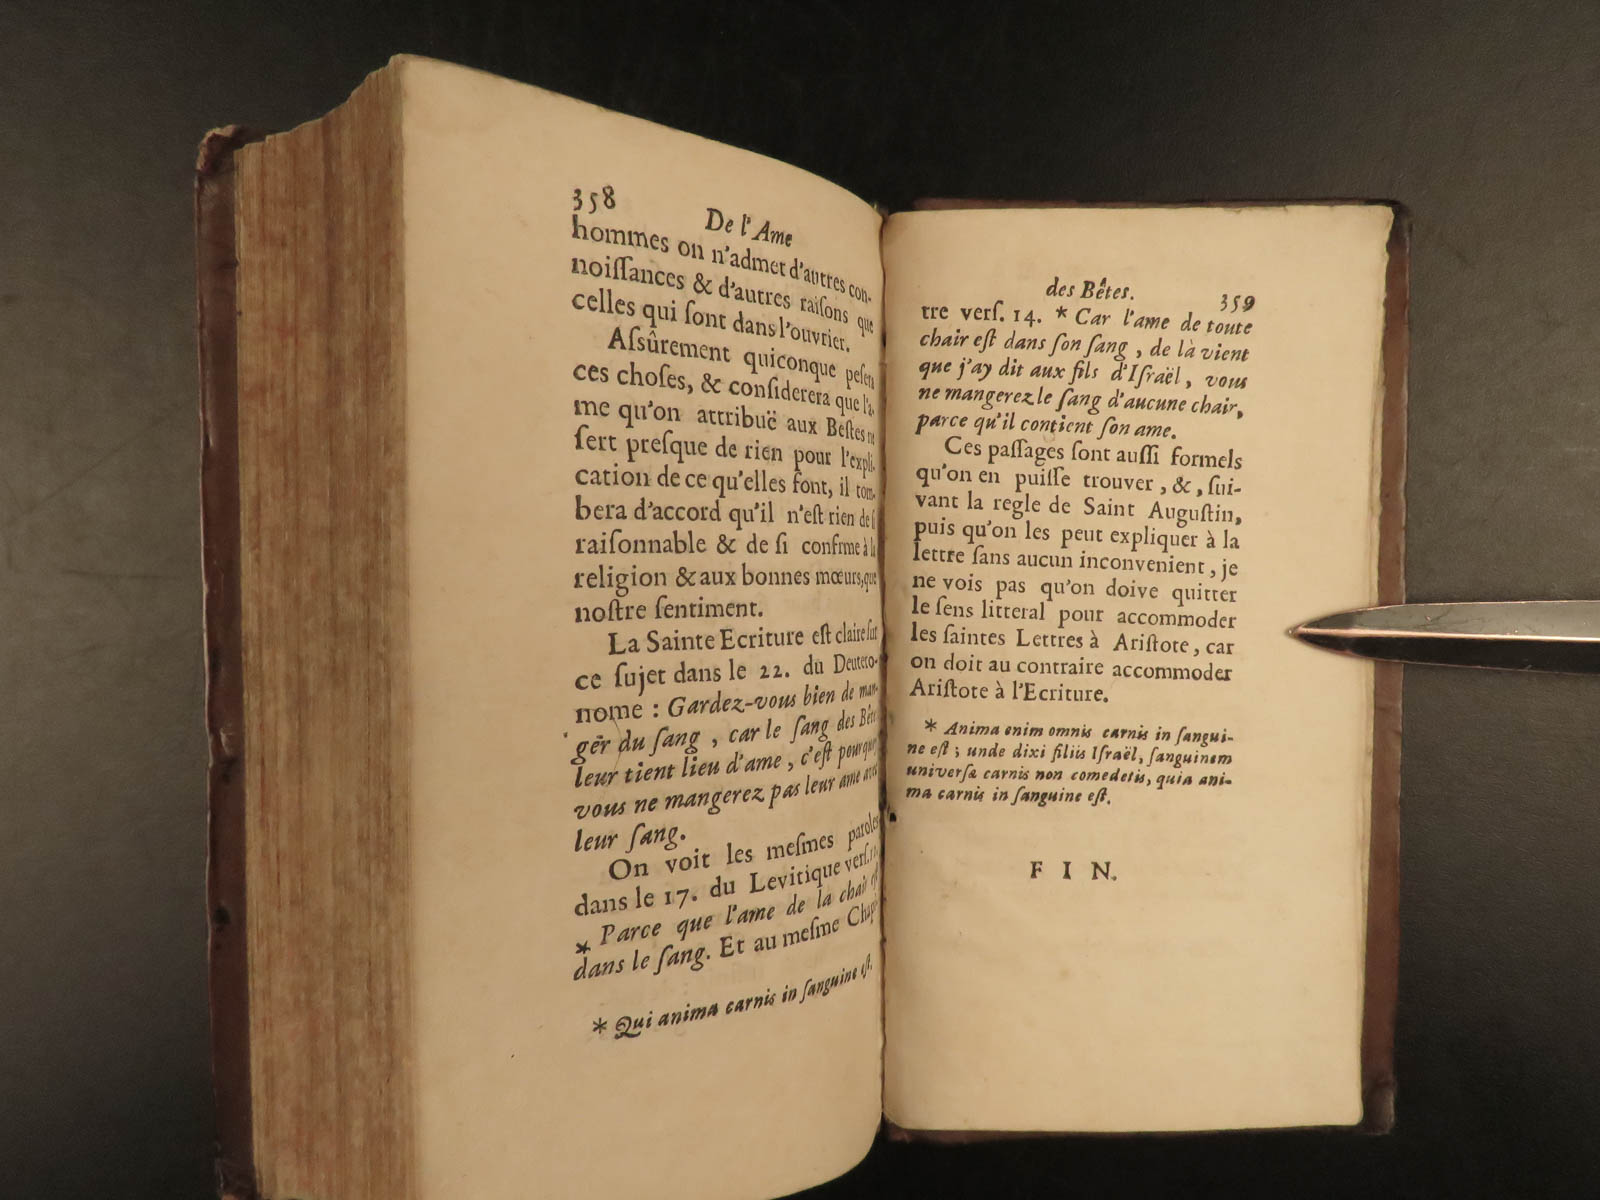 358
De l'Ame
hommes on n'admet d'autres con-
noiſſances & d'autres raiſons que
celles qui ſont dans l'ouvrier.
Aſsûrement quiconque peſera
ces choſes, & conſiderera que l'a-
me qu'on attribuë aux Beſtes ne
ſert preſque de rien pour l'expli-
cation de ce qu'elles font, il tom-
bera d'accord qu'il n'eſt rien de ſi
raiſonnable & de ſi confrme à la
religion & aux bonnes mœurs, que
noſtre ſentiment.
La Sainte Ecriture eſt claire ſur
ce ſujet dans le 22. du Deutero-
nome : Gardez-vous bien de man-
gér du ſang, car le ſang des Bêtes
leur tient lieu d'ame, c'eſt pourquoy
vous ne mangerez pas leur ame avec
leur ſang.
On voit les meſmes paroles
dans le 17. du Levitique verſ.
* Parce que l'ame de la chair eſt
dans le ſang. Et au meſme Chapi-
* Qui anima carnis in ſanguine eſt.
des Bêtes. 359
tre verſ. 14. * Car l'ame de toute
chair eſt dans ſon ſang, de là vient
que j'ay dit aux fils d'Iſraël, vous
ne mangerez le ſang d'aucune chair,
parce qu'il contient ſon ame.
Ces paſſages ſont auſſi formels
qu'on en puiſſe trouver, &, ſui-
vant la regle de Saint Auguſtin,
puis qu'on les peut expliquer à la
lettre ſans aucun inconvenient, je
ne vois pas qu'on doive quitter
le ſens litteral pour accommoder
les ſaintes Lettres à Ariſtote, car
on doit au contraire accommoder
Ariſtote à l'Ecriture.
* Anima enim omnis carnis in ſangui-
ne eſt; unde dixi filiis Iſraël, ſanguinem
univerſæ carnis non comedetis, quia ani-
ma carnis in ſanguine eſt.
FIN.